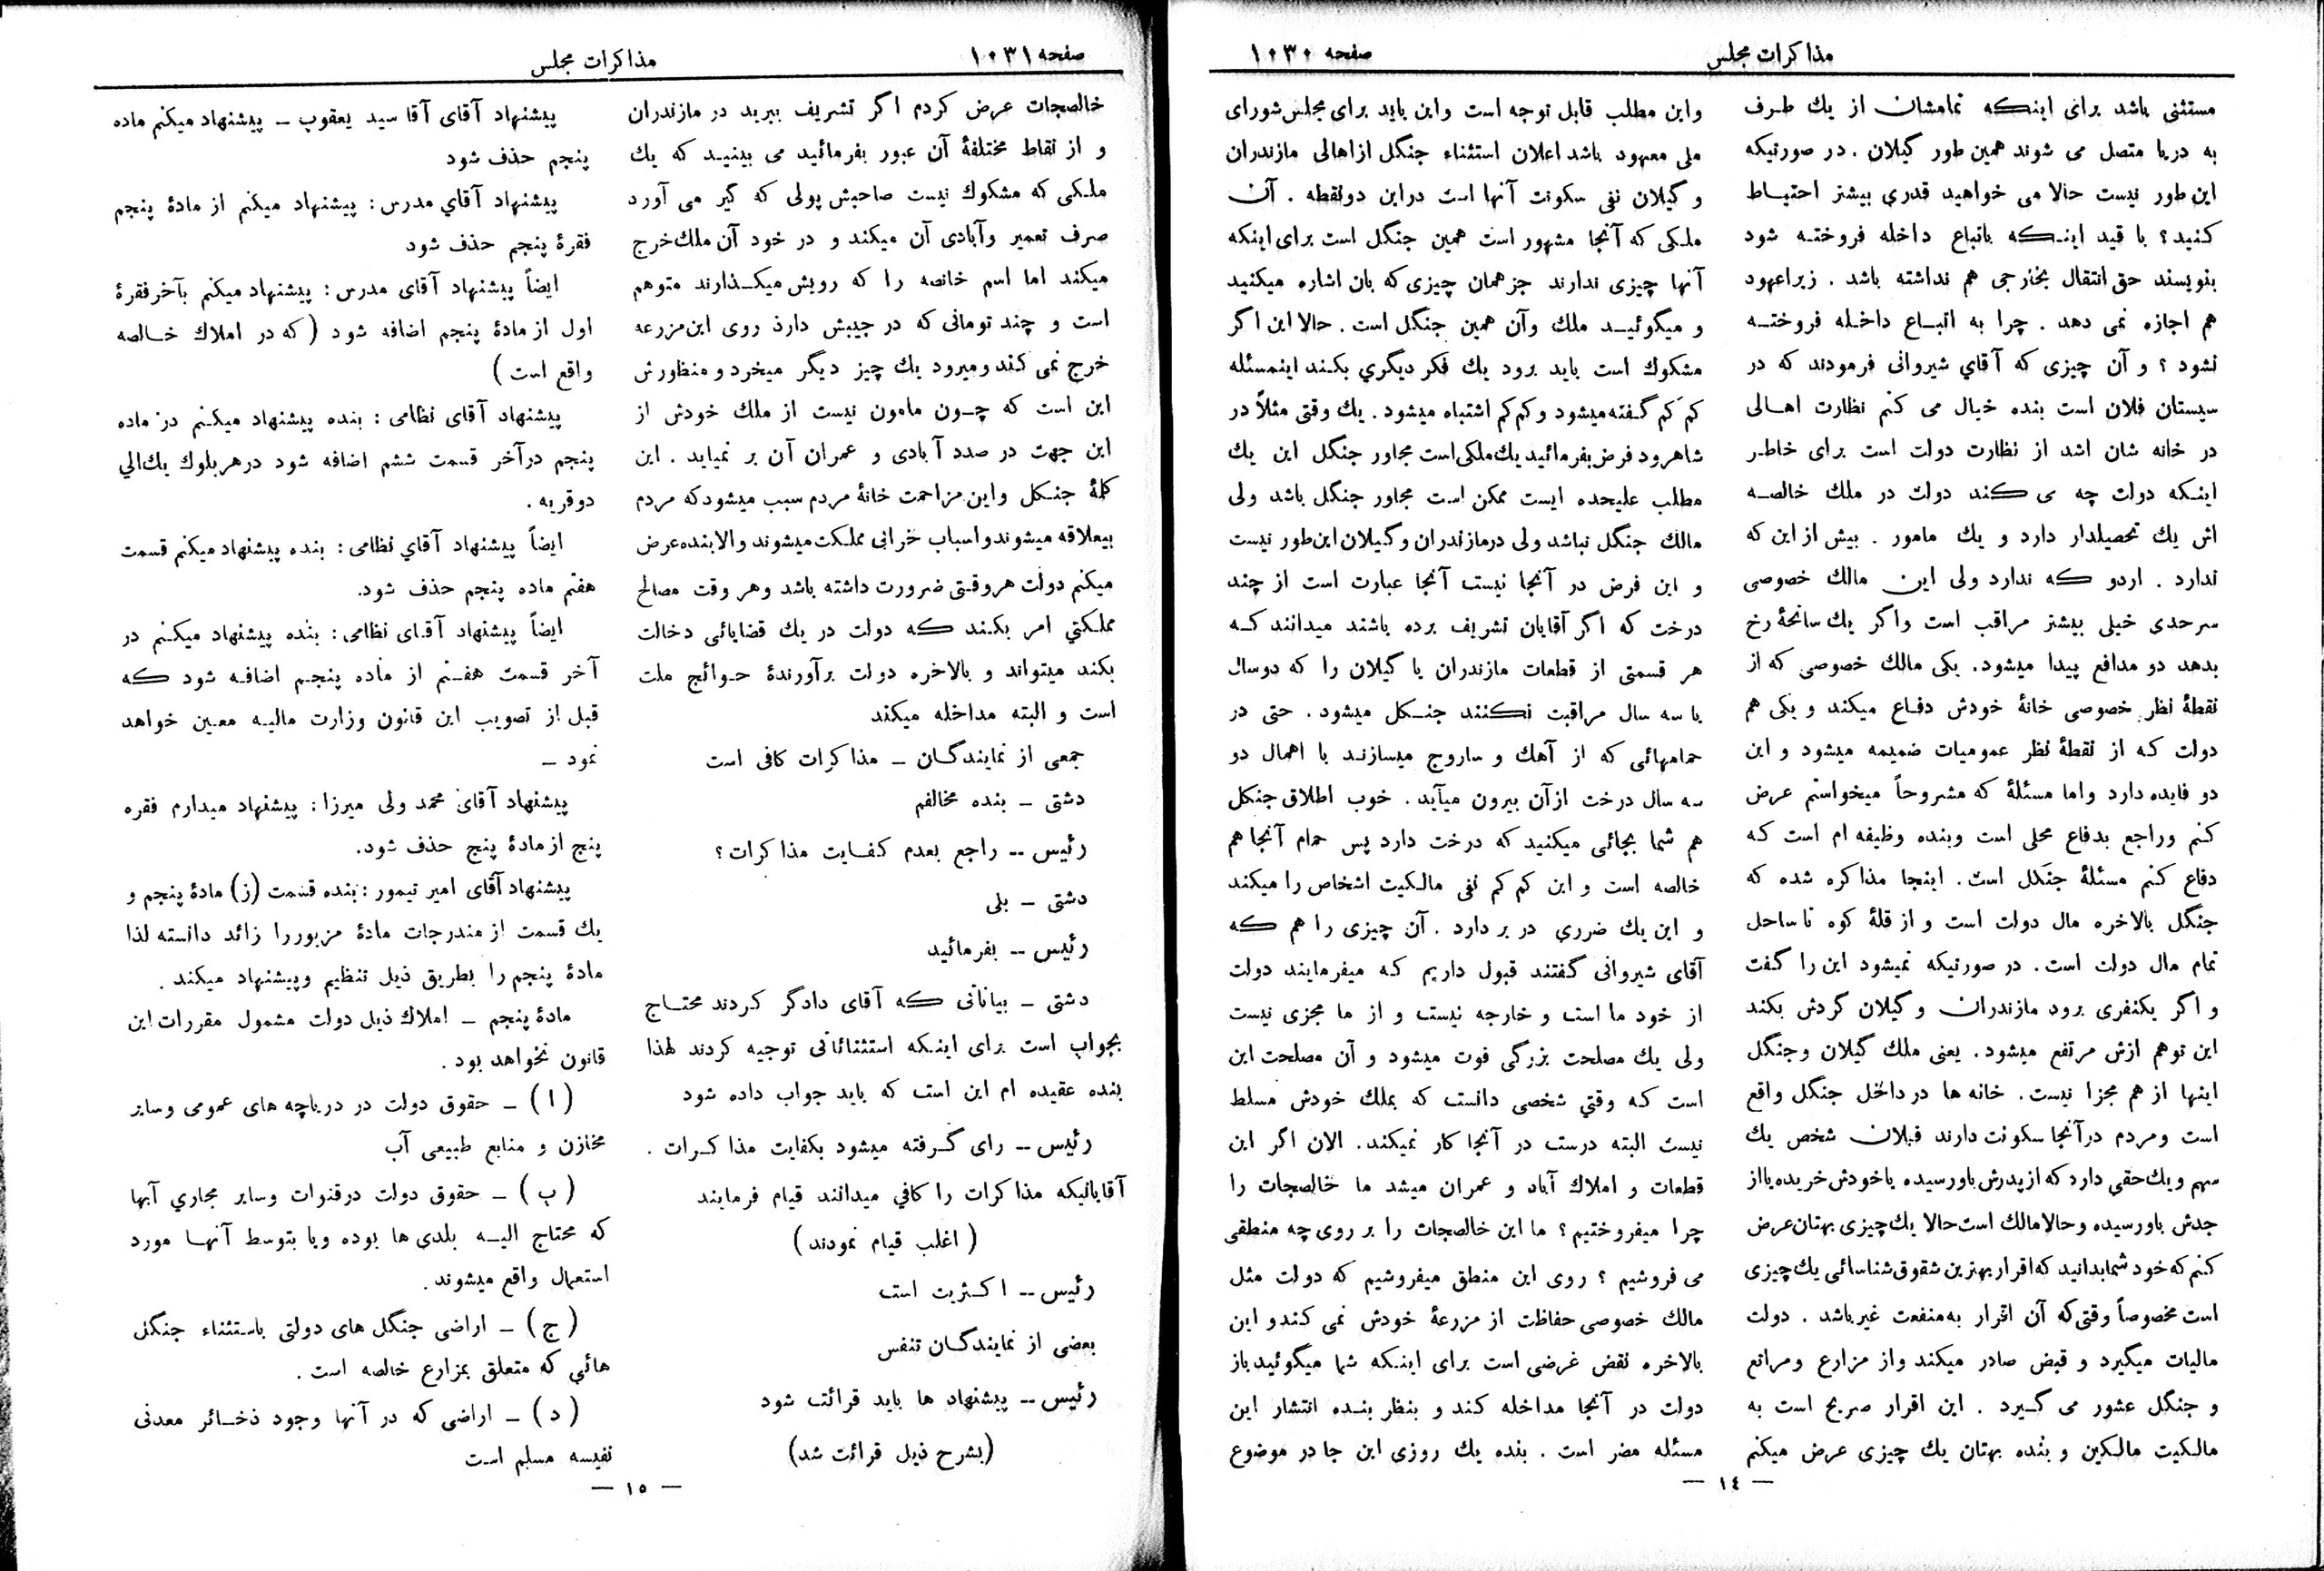 مذاکرات مجلس
صفحه ۱۰۳۰
مستثنی باشد برای اینکه تمامشان از یك طرف
به دریا متصل می شوند همین طور گیلان . در صورتیکه
این طور نیست حالا می خواهید قدری بیشتر احتیاط
کنید ؟ با قید اینکه باتباع داخله فروخته شود
بنویسند حق انتقال بخارجی هم نداشته باشد . زیرا عهود
هم اجازه نمی دهد . چرا به اتباع داخله فروخته
نشود ؟ و آن چیزی که آقای شیروانی فرمودند که در
سیستان فلان است بنده خیال می کنم نظارت اهالی
در خانه شان اشد از نظارت دولت است برای خاطر
اینکه دولت چه می کند دولت در ملك خالصه
اش یك تحصیلدار دارد و یك مامور . بیش از این که
ندارد . اردو که ندارد ولی این مالك خصوصی
سرحدی خیلی بیشتر مراقب است واگر یك سانحهٔ رخ
بدهد دو مدافع پیدا میشود. یکی مالك خصوصی که از
نقطهٔ نظر خصوصی خانهٔ خودش دفاع میکند و یکی هم
دولت که از نقطهٔ نظر عمومیات ضمیمه میشود و این
دو فایده دارد واما مسئلهٔ که مشروحاً میخواستم عرض
کنم وراجع بدفاع محلی است وبنده وظیفه ام است که
دفاع کنم مسئلهٔ جنگل است. اینجا مذاکره شده که
جنگل بالاخره مال دولت است و از قلهٔ کوه تا ساحل
تمام مال دولت است. در صورتیکه نمیشود این را گفت
و اگر یکنفری برود مازندران و گیلان گردش بکند
این توهم ازش مرتفع میشود. یعنی ملك گیلان وجنگل
اینها از هم مجزا نیست. خانه ها در داخل جنگل واقع
است ومردم درآنجا سکونت دارند فبلان شخص یك
سهم ویك حقی دارد که از پدرش باو رسیده یا خودش خریده یا از
جدش باو رسیده و حالا مالك است حالا یك چیزی بهتان عرض
کنم که خود شما بدانید که اقرار بهترین شقوق شناسائی یك چیزی
است مخصوصاً وقتی که آن اقرار به منفعت غیر باشد . دولت
مالیات میگیرد و قبض صادر میکند واز مزارع ومراتع
و جنگل عشور می گیرد . این اقرار صریح است به
مالکیت مالکین و بنده بهتان یك چیزی عرض میکنم
واین مطلب قابل توجه است واین باید برای مجلس شورای
ملی معهود باشد اعلان استثناء جنگل از اهالی مازندران
و گیلان نفی سکونت آنها است دراین دونقطه . آن
ملکی که آنجا مشهور است همین جنگل است برای اینکه
آنها چیزی ندارند جز همان چیزی که بان اشاره میکنید
و میگوئید ملك وآن همین جنگل است . حالا این اگر
مشکوك است باید برود یك فکر دیگری بکند اینمسئله
کم کم گفته میشود وکم کم اشتباه میشود . یك وقتی مثلاً در
شاهرود فرض بفرمائید یك ملکی است مجاور جنگل این یك
مطلب علیحده ایست ممکن است مجاور جنگل باشد ولی
مالك جنگل نباشد ولی درمازندران و گیلان این طور نیست
و این فرض در آنجا نیست آنجا عبارت است از چند
درخت که اگر آقایان تشریف برده باشند میدانند که
هر قسمتی از قطعات مازندران یا گیلان را که دوسال
یا سه سال مراقبت نکنند جنگل میشود . حتی در
حمامهائی که از آهك و ساروج میسازند با اهمال دو
سه سال درخت ازآن بیرون میآید . خوب اطلاق جنگل
هم شما بجائی میکنید که درخت دارد پس حمام آنجا هم
خالصه است و این کم کم نفی مالکیت اشخاص را میکند
و این یك ضرری در بر دارد . آن چیزی را هم که
آقای شیروانی گفتند قبول داریم که میفرمایند دولت
از خود ما است و خارجه نیست و از ما مجزی نیست
ولی یك مصلحت بزرگی فوت میشود و آن مصلحت این
است که وقتی شخصی دانست که بملك خودش مسلط
نیست البته درست در آنجا کار نمیکند. الان اگر این
قطعات و املاك آباد و عمران میشد ما خالصجات را
چرا میفروختیم ؟ ما این خالصجات را بر روی چه منطقی
می فروشیم ؟ روی این منطق میفروشیم که دولت مثل
مالك خصوصی حفاظت از مزرعهٔ خودش نمی کند و این
بالاخره نقض غرضی است برای اینکه شما میگوئید باز
دولت در آنجا مداخله کند و بنظر بنده انتشار این
مسئله مضر است . بنده یك روزی این جا در موضوع
— ۱٤ —
صفحه ۱۰۳۱
مذاکرات مجلس
خالصجات عرض کردم اگر تشریف ببرید در مازندران
و از نقاط مختلفهٔ آن عبور بفرمائید می بینید که یك
ملکی که مشکوك نیست صاحبش پولی که گیر می آورد
صرف تعمیر وآبادی آن میکند و در خود آن ملك خرج
میکند اما اسم خالصه را که رویش میگذارند متوهم
است و چند تومانی که در جیبش دارد روی این مزرعه
خرج نمی کند ومیرود یك چیز دیگر میخرد و منظورش
این است که چون مامون نیست از ملك خودش از
این جهت در صدد آبادی و عمران آن بر نمیاید . این
کلمهٔ جنگل واین مزاحمت خانهٔ مردم سبب میشود که مردم
بیعلاقه میشوند و اسباب خرابی مملکت میشوند والا بنده عرض
میکنم دولت هر وقتی ضرورت داشته باشد وهر وقت مصالح
مملکتی امر بکند که دولت در یك قضایائی دخالت
بکند میتواند و بالاخره دولت برآورندهٔ حوائج ملت
است و البته مداخله میکند
جمعی از نمایندگان ــ مذاکرات کافی است
دشتی ــ بنده مخالفم
رئیس ــ راجع بعدم کفایت مذاکرات؟
دشتی ــ بلی
رئیس ــ بفرمائید
دشتی ــ بیاناتی که آقای دادگر کردند محتاج
بجواب است برای اینکه استثنائاتی توجیه کردند لهذا
بنده عقیده ام این است که باید جواب داده شود
رئیس ــ رای گرفته میشود بکفایت مذاکرات .
آقایانیکه مذاکرات را کافی میدانند قیام فرمایند
( اغلب قیام نمودند )
رئیس ــ اکثریت است
بعضی از نمایندگان تنفس
رئیس ــ پیشنهاد ها باید قرائت شود
(بشرح ذیل قرائت شد)
پیشنهاد آقای آقا سید یعقوب ــ پیشنهاد میکنم ماده
پنجم حذف شود
پیشنهاد آقای مدرس : پیشنهاد میکنم از مادهٔ پنجم
فقرهٔ پنجم حذف شود
ایضاً پیشنهاد آقای مدرس : پیشنهاد میکنم بآخر فقرهٔ
اول از مادهٔ پنجم اضافه شود ( که در املاك خالصه
واقع است )
پیشنهاد آقای نظامی : بنده پیشنهاد میکنم در ماده
پنجم درآخر قسمت ششم اضافه شود درهر بلوك یك الی
دو قریه .
ایضاً پیشنهاد آقای نظامی : بنده پیشنهاد میکنم قسمت
هفتم ماده پنجم حذف شود.
ایضاً پیشنهاد آقای نظامی : بنده پیشنهاد میکنم در
آخر قسمت هفتم از ماده پنجم اضافه شود که
قبل از تصویب این قانون وزارت مالیه معین خواهد
نمود ــ
پیشنهاد آقای محمد ولی میرزا : پیشنهاد میدارم فقره
پنج از مادهٔ پنج حذف شود.
پیشنهاد آقای امیر تیمور : بنده قسمت (ز) مادهٔ پنجم و
یك قسمت از مندرجات مادهٔ مزبور را زائد دانسته لذا
مادهٔ پنجم را بطریق ذیل تنظیم وپیشنهاد میکند .
مادهٔ پنجم ــ املاك ذیل دولت مشمول مقررات این
قانون نخواهد بود .
( ا ) ــ حقوق دولت در دریاچه های عمومی وسایر
مخازن و منابع طبیعی آب
( ب ) ــ حقوق دولت درقنوات وسایر مجاری آبها
که محتاج الیه بلدی ها بوده ویا بتوسط آنها مورد
استعمال واقع میشوند .
( ج ) ــ اراضی جنگل های دولتی باستثناء جنگل
هائی که متعلق بمزارع خالصه است .
( د ) ــ اراضی که در آنها وجود ذخائر معدنی
نفیسه مسلم است
— ۱۵ —